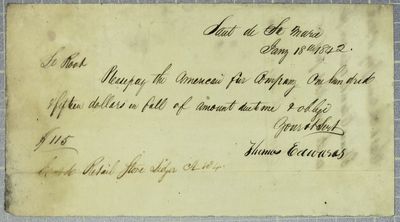 Saut de Ste Marie
Jany 18th 1842.
Please pay the American fur Company One hundred
& fifteen dollars in full of amount due me & oblige
Your obt Servt
$ 115
Thomas Edwards
Retail Store Ledger A 184